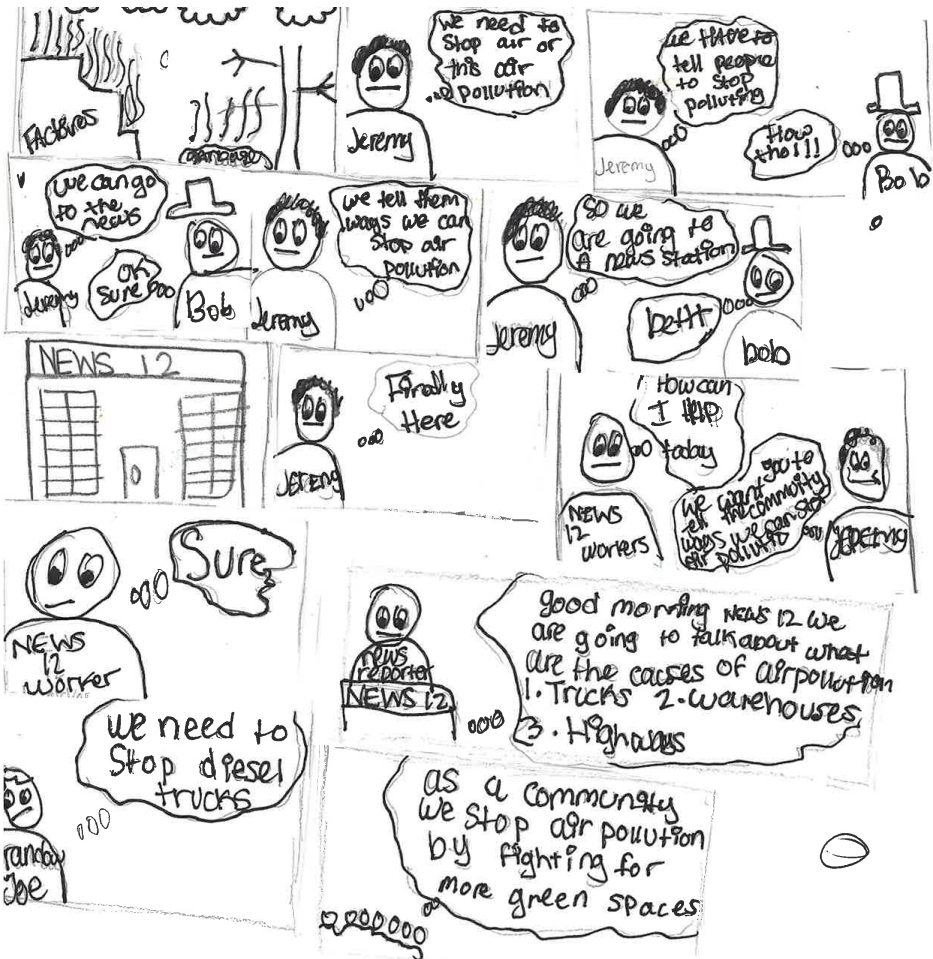 Factoires
garbage
we need to
stop air or
this air
pollution
Jeremy
we have to
tell people
to stop
polluting
Jeremy
How
tho!!!
Bob
we can go
to the
news
Jeremy
OK
sure
Bob
we tell them
ways we can
stop air
pollution
Jeremy
so we
are going to
A news station
Jeremy
bob
NEWS 12
Finally
Here
JEREMY
How can
I HElP
today
NEWS
12
workers
we want you to
tell the commuity
ways we can stop
air pollutio
JEREmy
Sure
NEWS
12
worker
good morning NEWS 12 we
are going to talk about what
are the causes of air pollution
1. Trucks 2. warehouses
3. Highways
news
reporter
NEWS 12
we need to
stop diesel
trucks
Joe
as a community
we stop air pollution
by fighting for
more green spaces